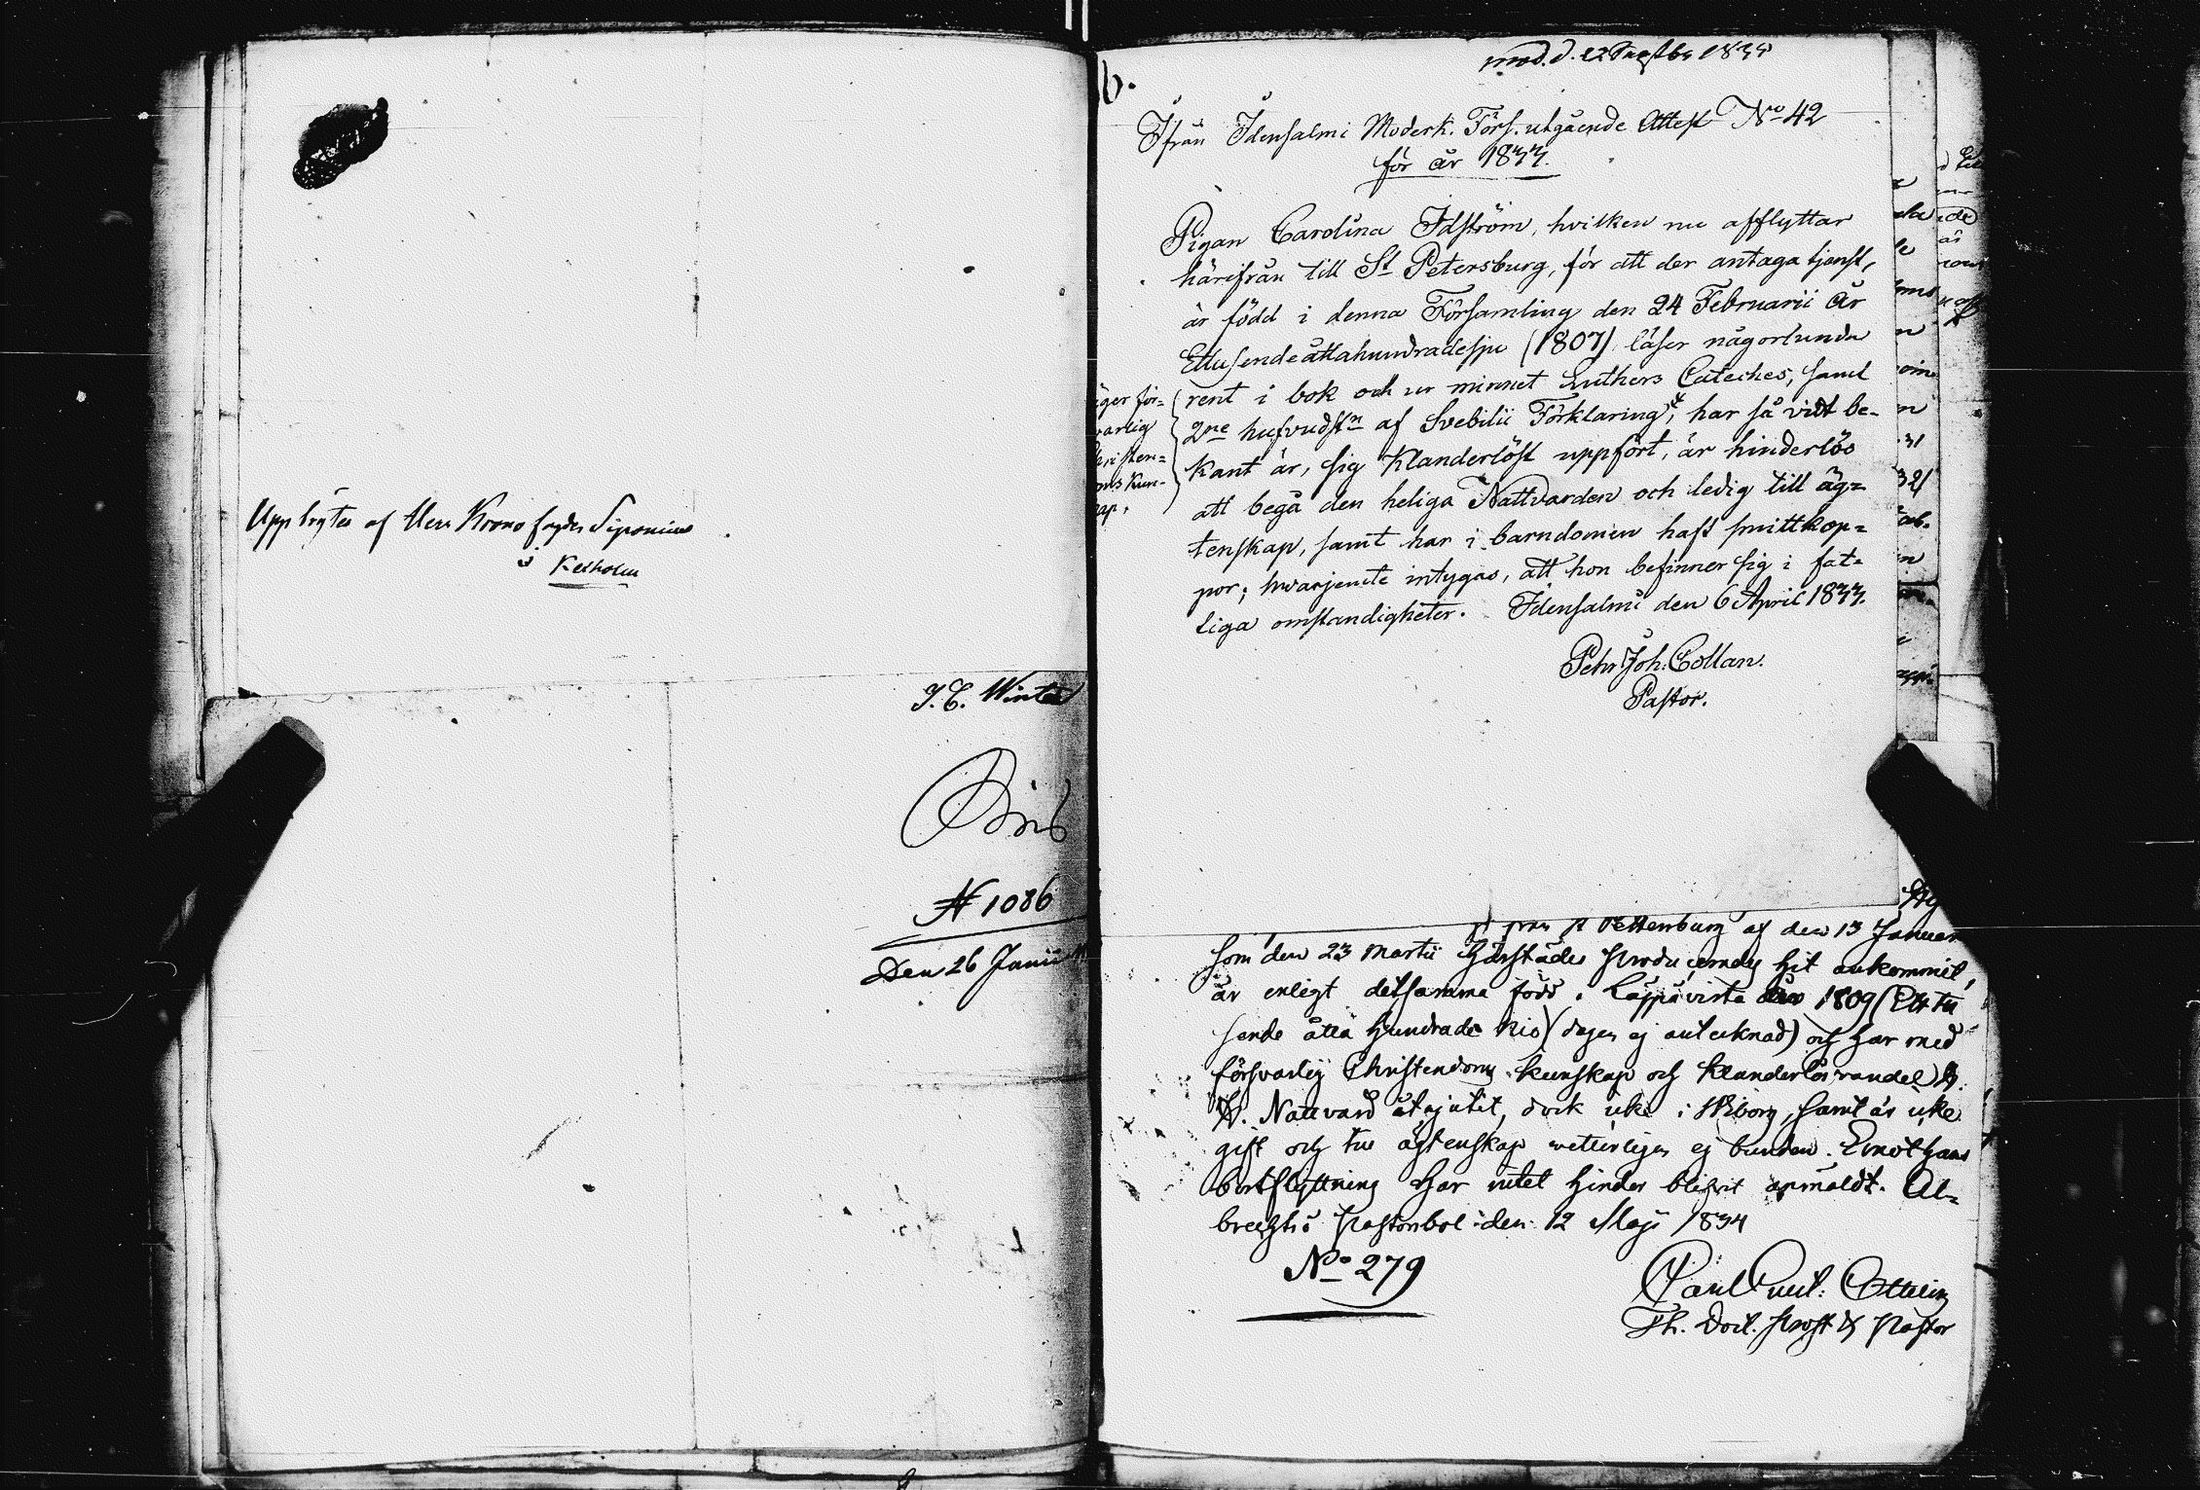 Upp brytes af Herr Krono fogden Siponius
i Kexholm
J. C. Winter
N 1086
Den 26 Junii
6.
1833
Ifrån Idensalmi Moderk. Förs. utgående Attest No 42
för år 1833.
Pigan Carolina Idström, hvilken nu afflyttar
härifrån till St Petersburg, för att der antaga tjenst,
är född i denna Församling den 24 Februarii år
Ettusendeåttahundradesju (1807) läser någorlunda
rent i bok och ur minnet Luthers Cateches, samt
2ne hufvudstn af Svebilii Förklaring, har så vidt be-
kant är, sig klanderlöst uppfört, är hinderlös
att begå den heliga Nattvarden och ledig till äg=
tenskap, samt har i barndomen haft smittkop=
por; hvarjemte intygas, att hon befinner sig i fat=
tiga omständigheter. Idensalmi den 6 April 1833.
Pehr Joh: Collan.
Pastor.
äger för=
varlig
Christen=
oms kun-
ap.
af den 13 Januar
som den 23 Martii härstädes producerades hit ankommit,
är enligt detsamma född i Leppävirta 1809 (Ett tu
sende åtta hundrade nio) (dagen ej antecknad) och har med
försvarlig Christendoms kunskap och klanderlös vandel H.
H. Nattvard åtnjutit, dock icke i Wiborg, samt är icke
gift och till ägtenskap vetterligen ej bunden. Emot hans
bortflyttning har intet hinder blifvit anmäldt. Al-
brechts Pastorsbol den 12 Maji 1834
No 279
Carl Ottelin
Th. Doct. Prost & Pastor